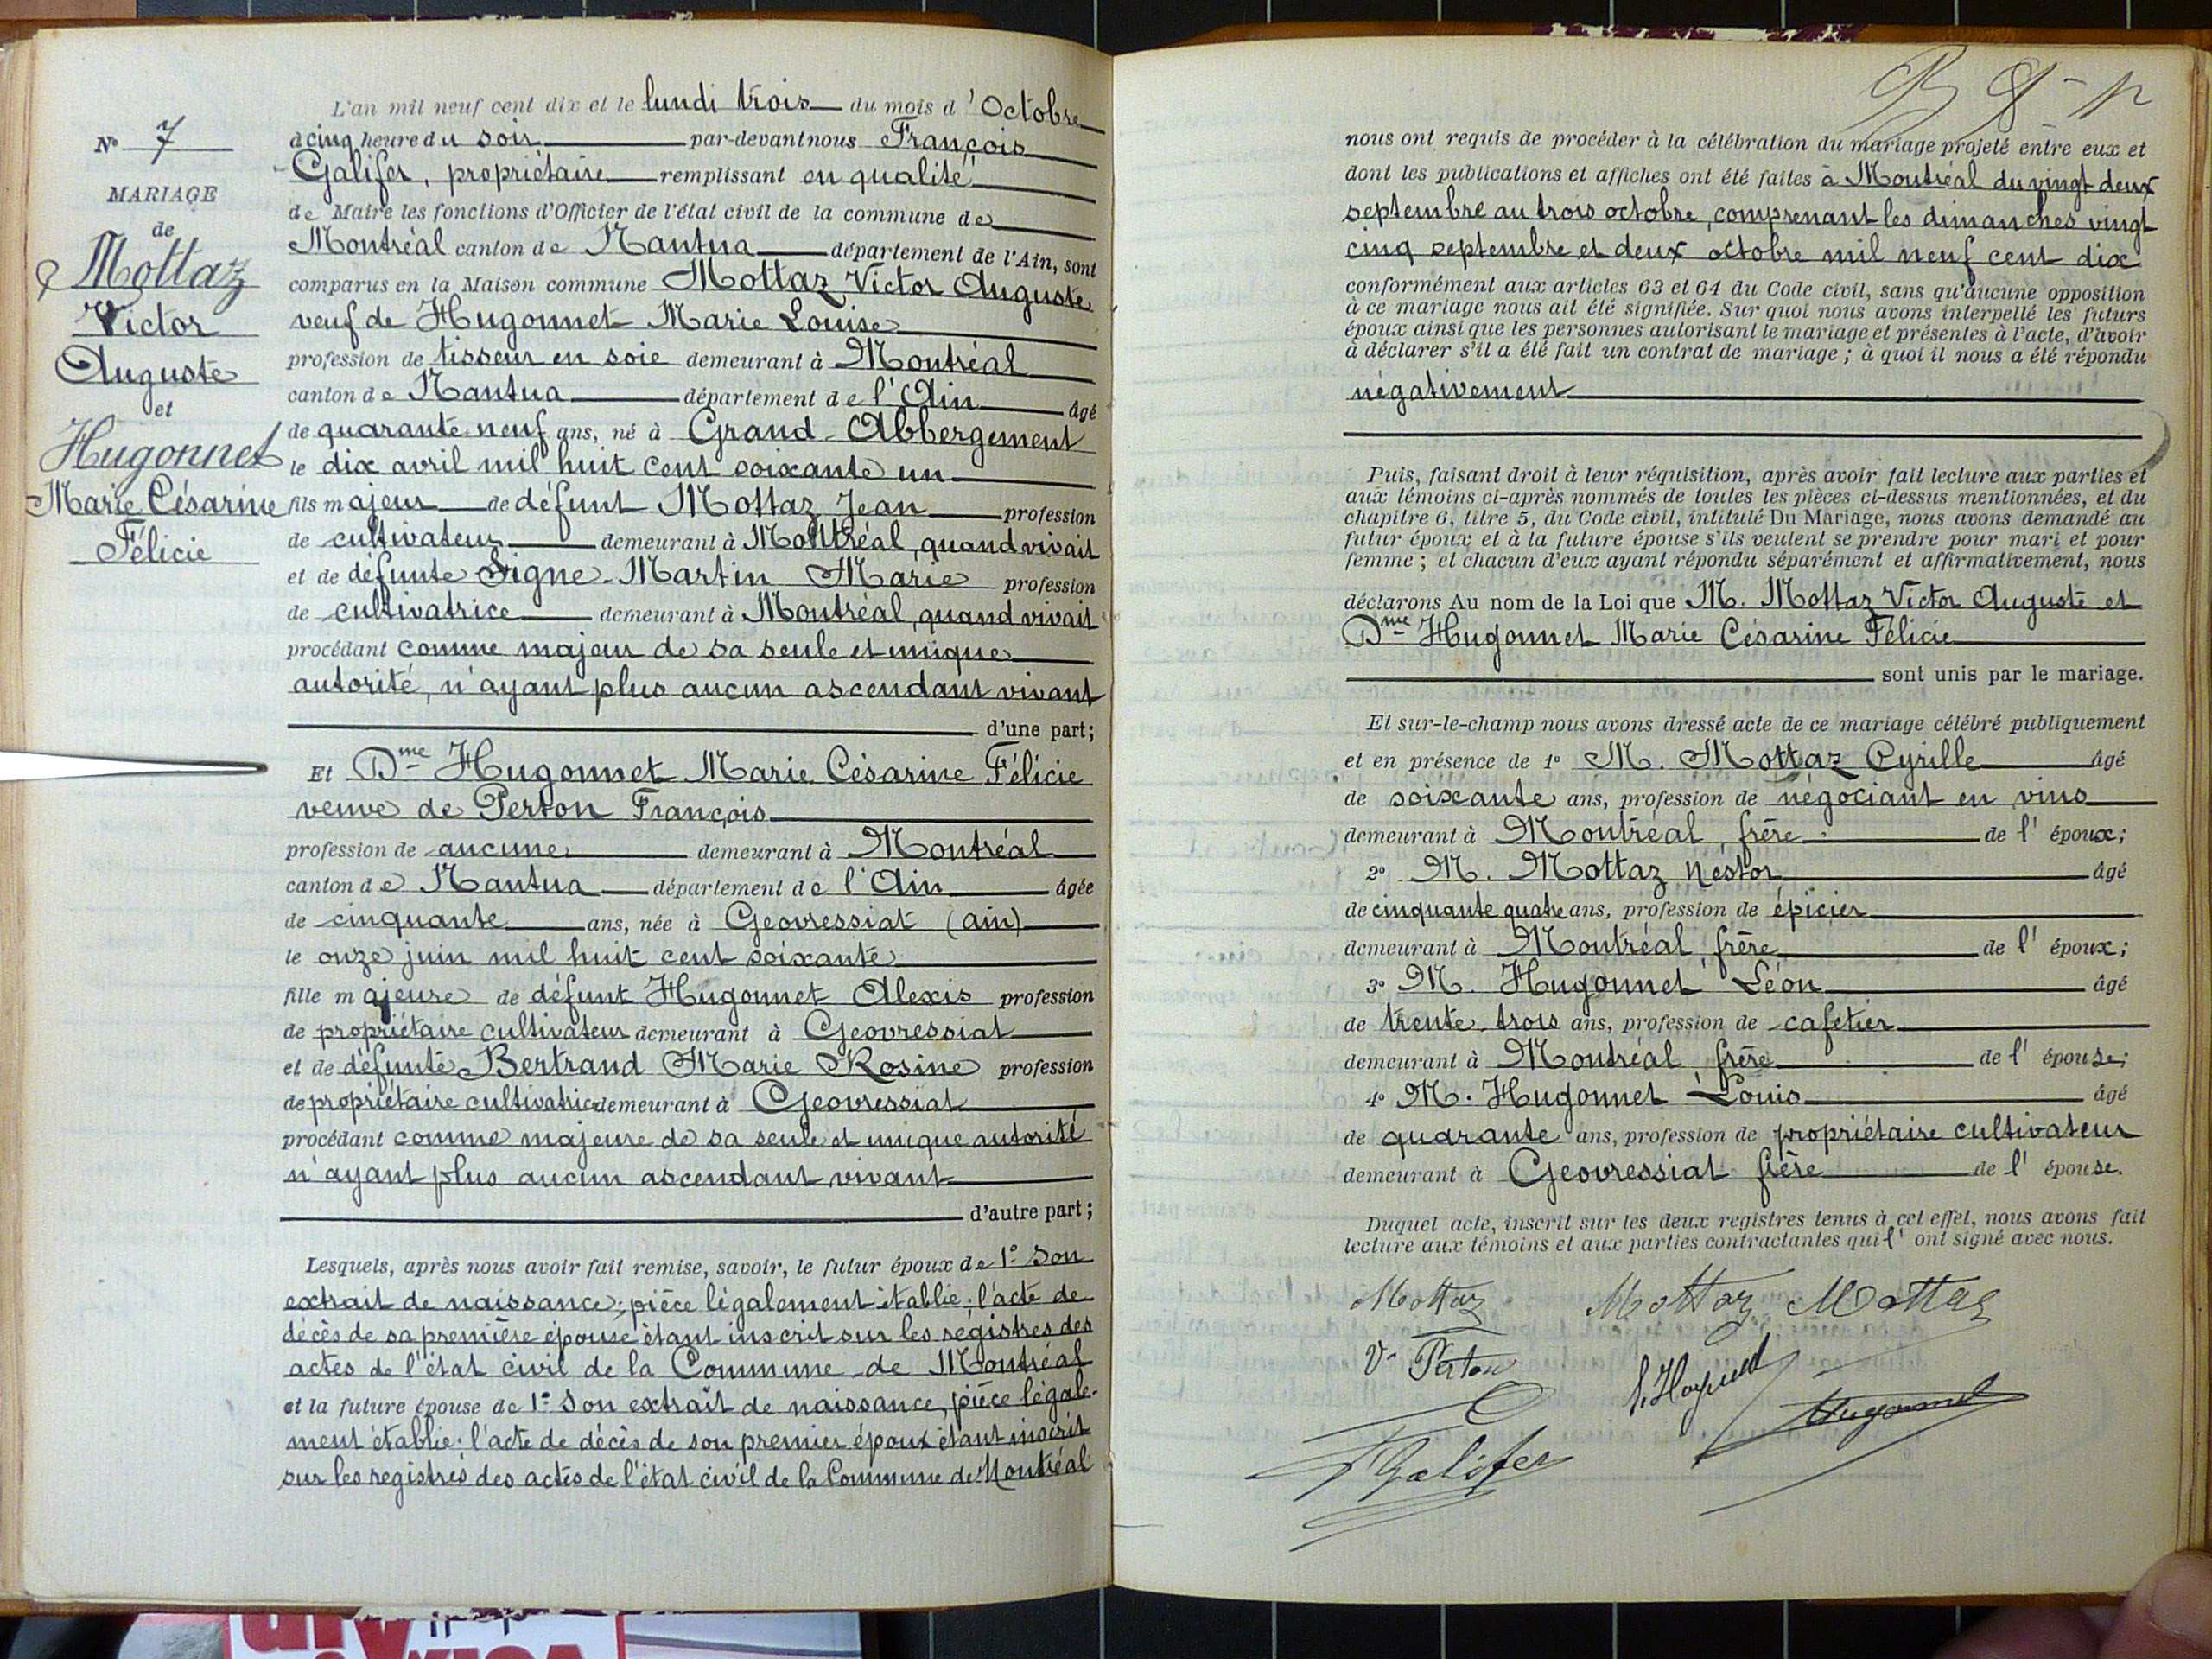 L'an mil neuf cent dix et le lundi trois du mois d'Octobre
à cinq heure du soir par-devant nous François
Galifer, propriétaire remplissant en qualité
de Maire les fonctions d'Officier de l'état civil de la commune de
Montréal canton de Nantua département de l'Ain, sont
comparus en la Maison commune Mottaz Victor Auguste
veuf de Hugonnet Marie Louise
profession de tisseur en soie demeurant à Montréal
canton de Nantua département de l'Ain âgé
de quarante-neuf ans, né à Grand-Abbergement
le dix avril mil huit cent soixante un
fils majeur de défunt Mottaz Jean profession
de cultivateur demeurant à Montréal, quand vivait
et de défunte Signe-Martin Marie profession
de cultivatrice demeurant à Montréal, quand vivait
procédant comme majeur de sa seule et unique
autorité, n'ayant plus aucun ascendant vivant
d'une part;
Et Dme Hugonnet Marie Césarine Félicie
veuve de Perton François
profession de aucune demeurant à Montréal
canton de Nantua département de l'Ain âgée
de cinquante ans, née à Geovressiat (ain)
le onze juin mil huit cent soixante
fille majeure de défunt Hugonnet Alexis profession
de propriétaire cultivateur demeurant à Geovressiat
et de défunte Bertrand Marie Rosine profession
de propriétaire cultivatrice demeurant à Geovressiat
procédant comme majeure de sa seule et unique autorité
n'ayant plus aucun ascendant vivant
d'autre part;
Lesquels, après nous avoir fait remise, savoir, le futur époux de 1° Son
extrait de naissance; pièce légalement établie; l'acte de
décès de sa première épouse étant inscrit sur les registres des
actes de l'état civil de la Commune de Montréal
et la future épouse de 1° Son extrait de naissance, pièce légale-
ment établie; l'acte de décès de son premier époux étant inscrit
sur les registres des actes de l'état civil de la Commune de Montréal
N° 7
MARIAGE
de
Mottaz
Victor
Auguste
et
Hugonnet
Marie Césarine
Félicie
nous ont requis de procéder à la célébration du mariage projeté entre eux et
dont les publications et affiches ont été faites à Montréal du vingt deux
septembre au trois octobre, comprenant les dimanches vingt
cinq septembre et deux octobre mil neuf cent dix
conformément aux articles 63 et 64 du Code civil, sans qu'aucune opposition
à ce mariage nous ait été signifiée. Sur quoi nous avons interpellé les futurs
époux ainsi que les personnes autorisant le mariage et présentes à l'acte, d'avoir
à déclarer s'il a été fait un contrat de mariage; à quoi il nous a été répondu
négativement
Puis, faisant droit à leur réquisition, après avoir fait lecture aux parties et
aux témoins ci-après nommés de toutes les pièces ci-dessus mentionnées, et du
chapitre 6, titre 5, du Code civil, intitulé Du Mariage, nous avons demandé au
futur époux et à la future épouse s'ils veulent se prendre pour mari et pour
femme; et chacun d'eux ayant répondu séparément et affirmativement, nous
déclarons Au nom de la Loi que M. Mottaz Victor Auguste et
Dme Hugonnet Marie Césarine Félicie
sont unis par le mariage.
Et sur-le-champ nous avons dressé acte de ce mariage célébré publiquement
et en présence de 1° M. Mottaz Cyrille âgé
de soixante ans, profession de négociant en vins
demeurant à Montréal, frère de l'époux;
2° M. Mottaz Nestor âgé
de cinquante quatre ans, profession de épicier
demeurant à Montréal, frère de l'époux;
3° M. Hugonnet Léon âgé
de trente-trois ans, profession de cafetier
demeurant à Montréal, frère de l'épouse;
4° M. Hugonnet Louis âgé
de quarante ans, profession de propriétaire cultivateur
demeurant à Geovressiat frère de l'épouse.
Duquel acte, inscrit sur les deux registres tenus à cet effet, nous avons fait
lecture aux témoins et aux parties contractantes qui l'ont signé avec nous.
Mottaz Mottaz Mottaz
Ve Perton Hugonnet
Galifer